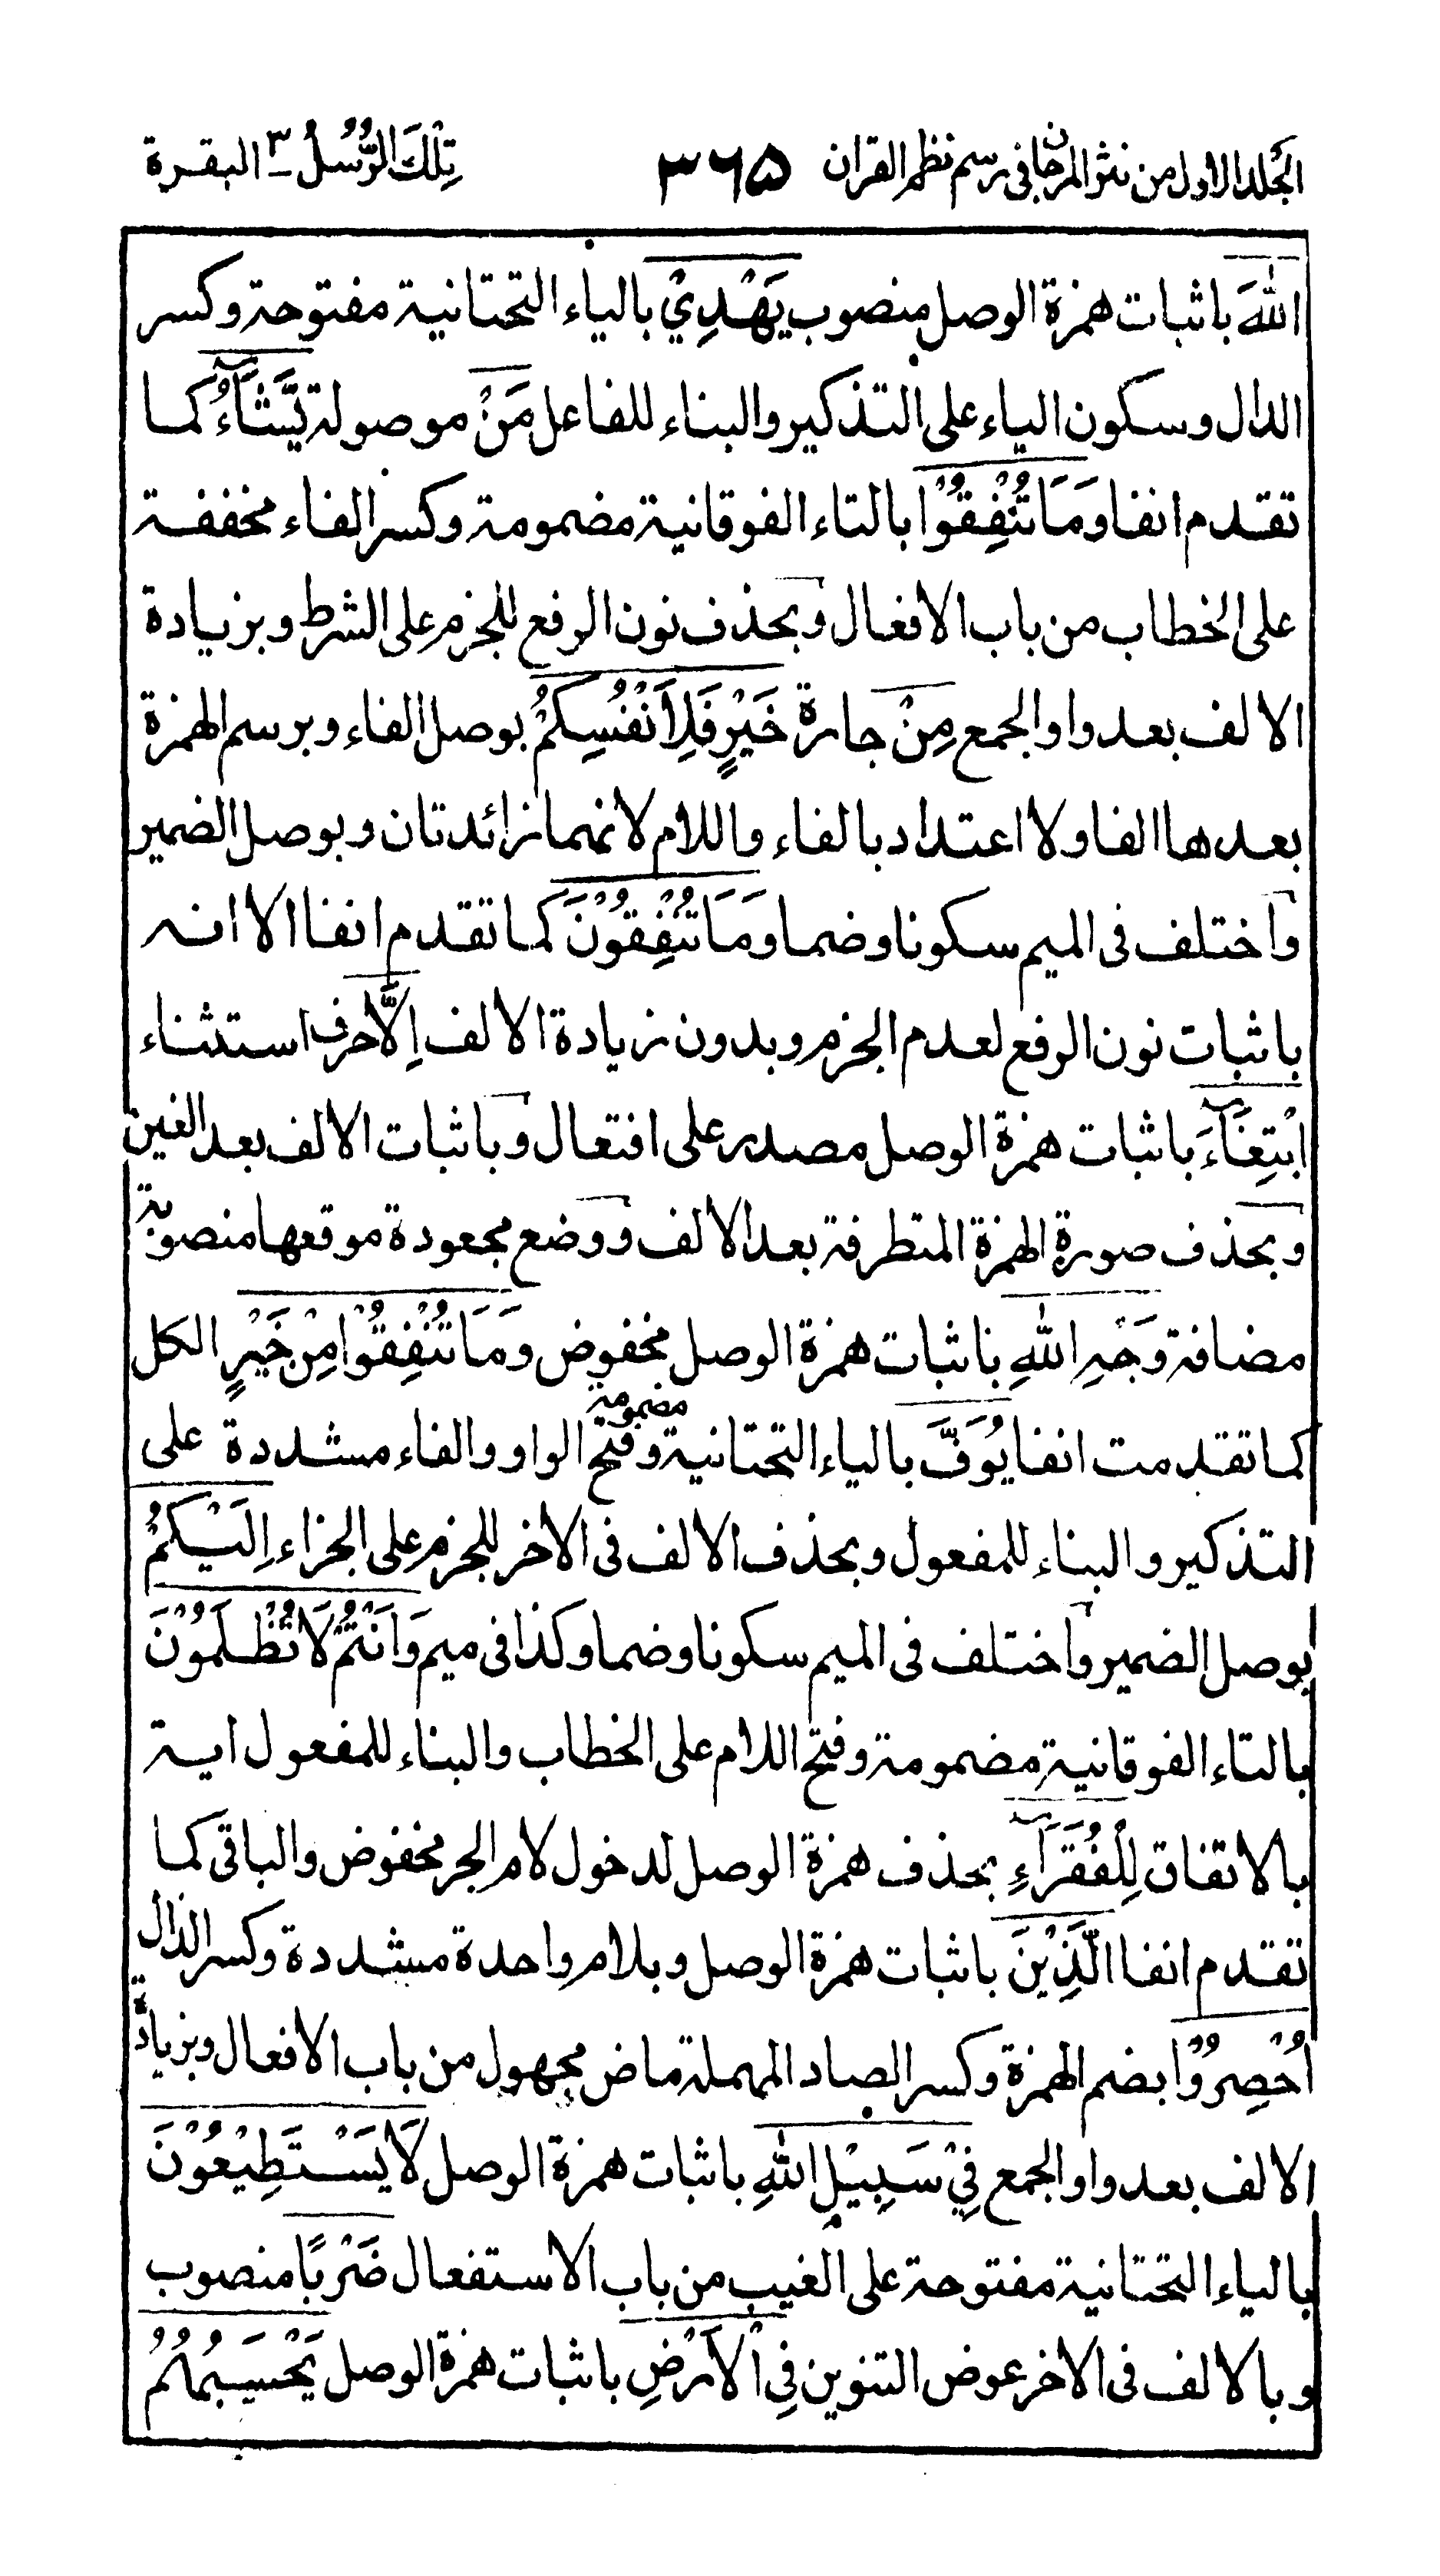 الجلد الاول من نثر المرجان فى رسم نظم القران ٣٦٥ تِلْكَ الرُّسُلُ ٣ ـ البقرة
اللّٰهَ باثبات همزة الوصل منصوب يَهْدِيْ بالياء التحتانية مفتوحة وكسر
الدال وسكون الياء على التذكير والبناء للفاعل مَنْ موصولة يَّشَآءُ كما
تقدم انفا وَمَا تُنْفِقُوْا بالتاء الفوقانية مضمومة وكسر الفاء مخففة
على الخطاب من باب الافعال وبحذف نون الرفع للجزم على الشرط وبزيادة
الالف بعد واو الجمع مِنْ جارة خَيْرٍ فَلِاَنْفُسِكُمْ بوصل الفاء وبرسم الهمزة
بعدها الفا ولا اعتداد بالفاء واللام لانهما زائدتان وبوصل الضمير
واختلف فى الميم سكونا وضما وَمَا تُنْفِقُوْنَ كما تقدم انفا الا انه
باثبات نون الرفع لعدم الجزم وبدون زيادة الالف اِلَّا حرف استثناء
ابْتِغَآءَ باثبات همزة الوصل مصدر على افتعال وباثبات الالف بعد الغين
وبحذف صورة الهمزة المتطرفة بعد الالف ووضع مجعودة موقعها منصوبة
مضافة وَجْهِ اللّٰهِ باثبات همزة الوصل مخفوض وَمَا تُنْفِقُوْا مِنْ خَيْرٍ الكل
كما تقدمت انفا يُوَفَّ بالياء التحتانية مضمومة وفتح الواو والفاء مشددة على
التذكير والبناء للمفعول وبحذف الالف فى الاخر للجزم على الجزاء اِلَيْكُمْ
بوصل الضمير واختلف فى الميم سكونا وضما وكذا فى ميم وَاَنْتُمْ لَا تُظْلَمُوْنَ
بالتاء الفوقانية مضمومة وفتح اللام على الخطاب والبناء للمفعول اية
بالاتفاق لِلْفُقَرَآءِ بحذف همزة الوصل لدخول لام الجر مخفوض والباقى كما
تقدم انفا الَّذِيْنَ باثبات همزة الوصل وبلام واحدة مشددة وكسر الذال
اُحْصِرُوْا بضم الهمزة وكسر الصاد المهملة ماض مجهول من باب الافعال وبزيادة
الالف بعد واو الجمع فِيْ سَبِيْلِ اللّٰهِ باثبات همزة الوصل لَا يَسْتَطِيْعُوْنَ
بالياء التحتانية مفتوحة على الغيب من باب الاستفعال ضَرْبًا منصوب
وبالالف فى الاخر عوض التنوين فِي الْاَرْضِ باثبات همزة الوصل يَحْسَبُهُمُ